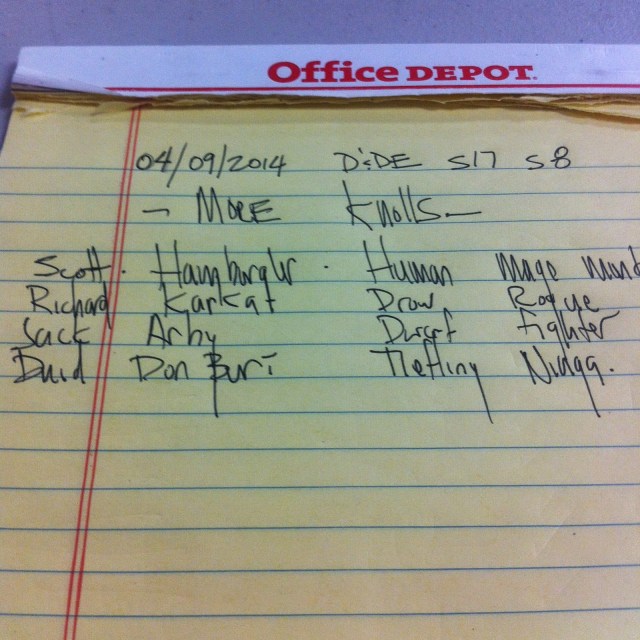 Office DEPOT.
04/09/2014 D&DE S17 S8
- MORE Knolls -
Scott. Hamburglr. Human Mage
Richard Karkat Drow Rogue
Arby Dwarf Fighter
David Don Buri Tiefling